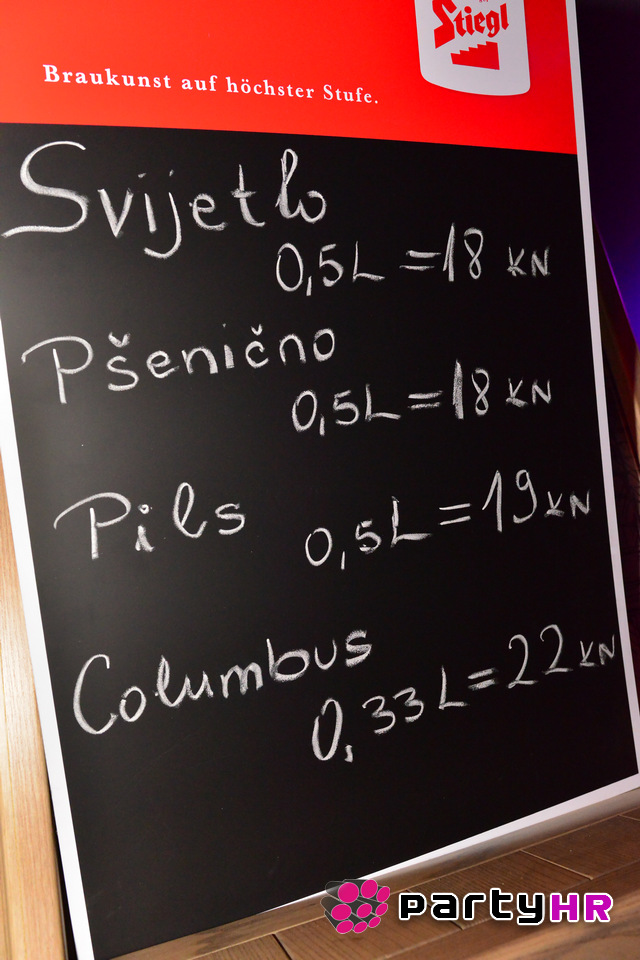 Stiegl
Braukunst auf höchster Stufe.
Svijetlo
0,5L = 18 KN
Pšenično
0,5L = 18 KN
Pils
0,5L = 19 KN
Columbus
0,33L = 22 KN
partyHR